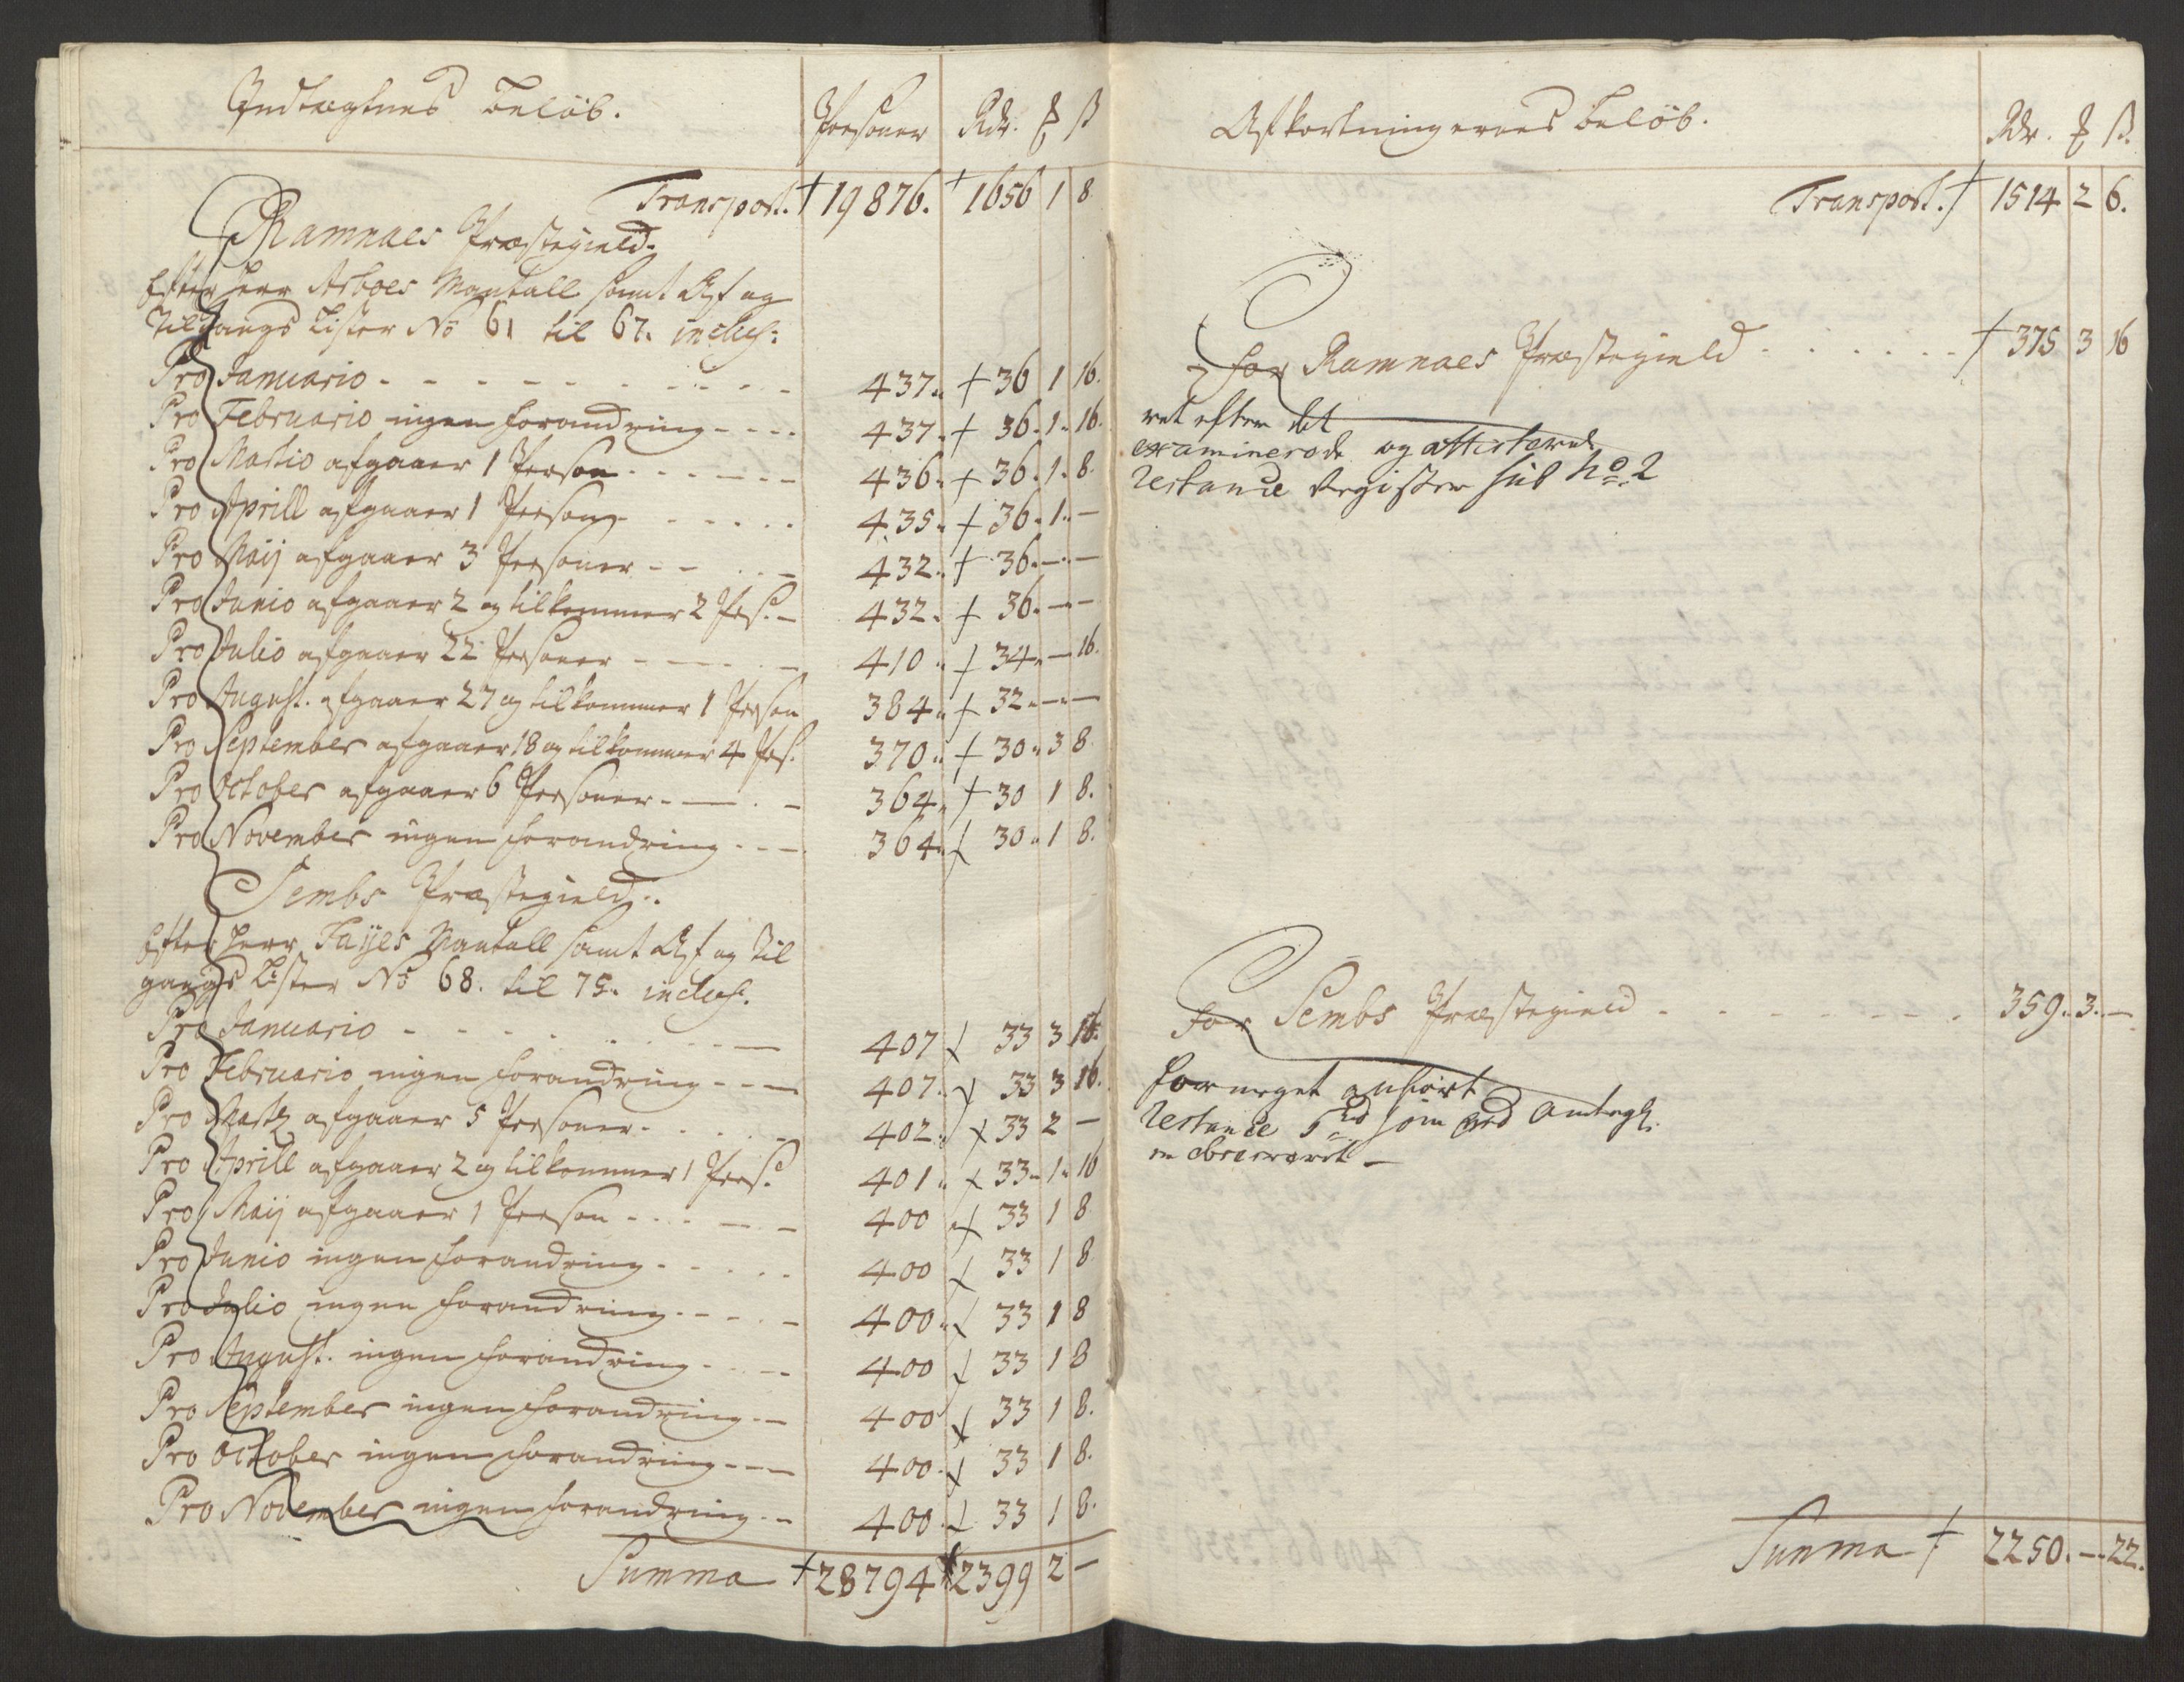 Indtægtnes Beløb. Personer Rdr. ℥ β
Transport. † 19876. † 1656 1 8
Ramnæs Præstegield.
Efter Herr Arboes Mantall samt Af og
Tilgangs Lister No 61 til 67. inclus:
Pro Januario - - - - - - - - 437 „ † 36 1 16.
Pro Februario ingen forandring - - - - 437 „ † 36 „ 1 „ 16.
Pro Martio afgaaer 1 Person - - - - - - 436 „ † 36 „ 1 „ 8.
Pro Aprill afgaaer 1 Person - - - - - - 435 „ † 36 „ 1 „ -
Pro Maij afgaaer 3 Personer - - - - - 432 „ † 36 „ - „ -
Pro Junio afgaaer 2 og tilkommer 2 Pers. - 432 „ † 36 „ - -
Pro Julio afgaaer 22 Personer - - - - - 410 „ † 34 „ - 16.
Pro August. afgaaer 27 og tilkommer 1 Person 384 „ † 32 „ - „ -
Pro September afgaaer 18 og tilkommer 4 Pers. 370 „ † 30 „ 3 8.
Pro October afgaaer 6 Personer - - - - 364 „ † 30 1 8.
Pro November ingen forandring - - - 364 „ † 30 „ 1 8.
Sembs Præstegield.
Efter Herr Fayes Mantall samt Af og Til
gangs Lister No 68. til 75. inclus.
Pro Januario - - - - - - - - 407 † 33 3 16.
Pro Februario ingen forandring - - - - 407. † 33 3 16.
Pro Marty afgaaer 5 Personer - - - - - 402 „ † 33 2 -
Pro Aprill afgaaer 2 og tilkommer 1 Pers. 401 „ † 33 „ 1 „ 16
Pro Maij afgaaer 1 Person - - - - - - 400 „ † 33 1 8
Pro Junio ingen forandring - - - - - 400 † 33 1 8
Pro Julio ingen forandring - - - - - 400 „ † 33 1 8
Pro August. ingen forandring - - - - 400 † 33 1 8
Pro September ingen forandring - - 400 † 33 1 8.
Pro October ingen forandring - - - 400 † 33 1 8.
Pro November ingen forandring - - 400 † 33 1 8.
Summa † 28794 † 2399 2 -
Afkortningernes Beløb. Rdr. ℥ β.
Transport. † 1514 2 6.
For Ramnæs Præstegield - - - - - † 375 3 16
ret efter det
examinerede og attisterede
restance Register sub No 2
For Sembs Præstegield - - - - - - - 359 „ 3 „ -
for meget anført
restance 5 rd som ved Antegn.
er observeret -
Summa † 2250. - 22.